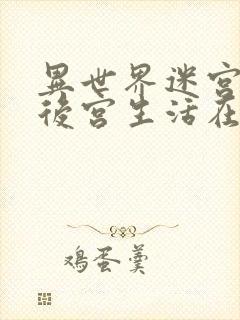 異世界迷宮
後宮生活在
鸡蛋羹